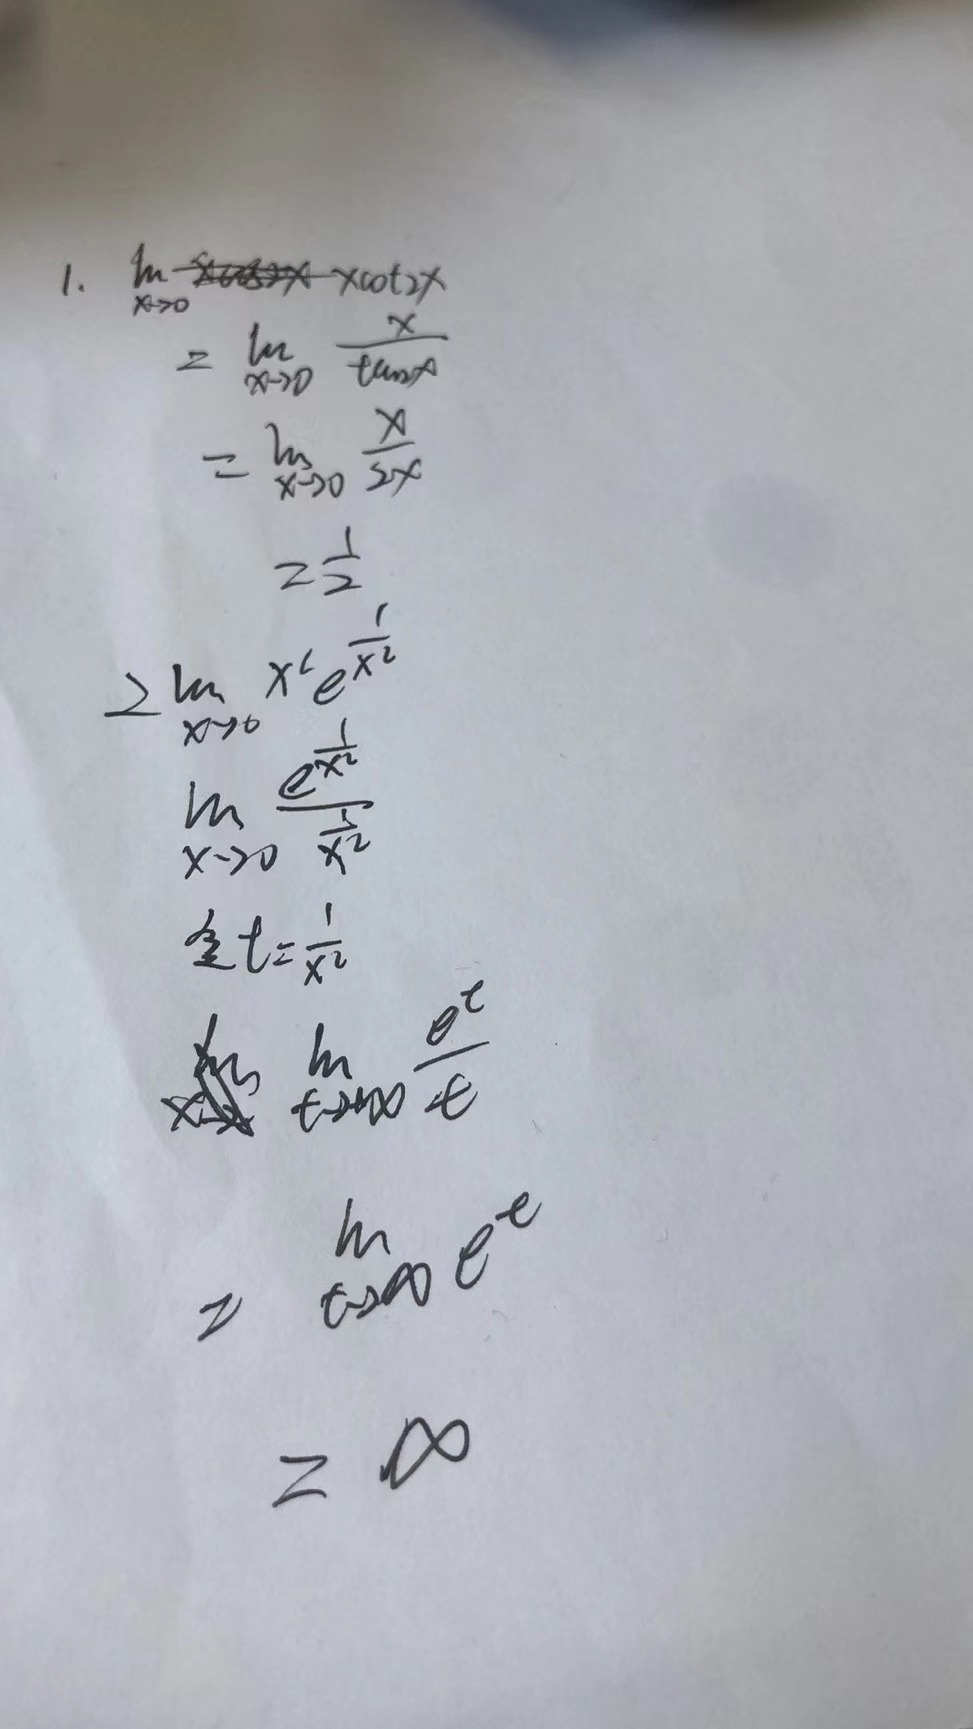 1. lim x→0 xcot2x
= lim x→0 x/tan2x
= lim x→0 x/2x
= 1/2
2 lim x→0 x² e^(1/x²)
lim x→0 e^(1/x²)/(1/x²)
令 t = 1/x²
lim t→+∞ e^t/t
= lim t→∞ e^t
= ∞